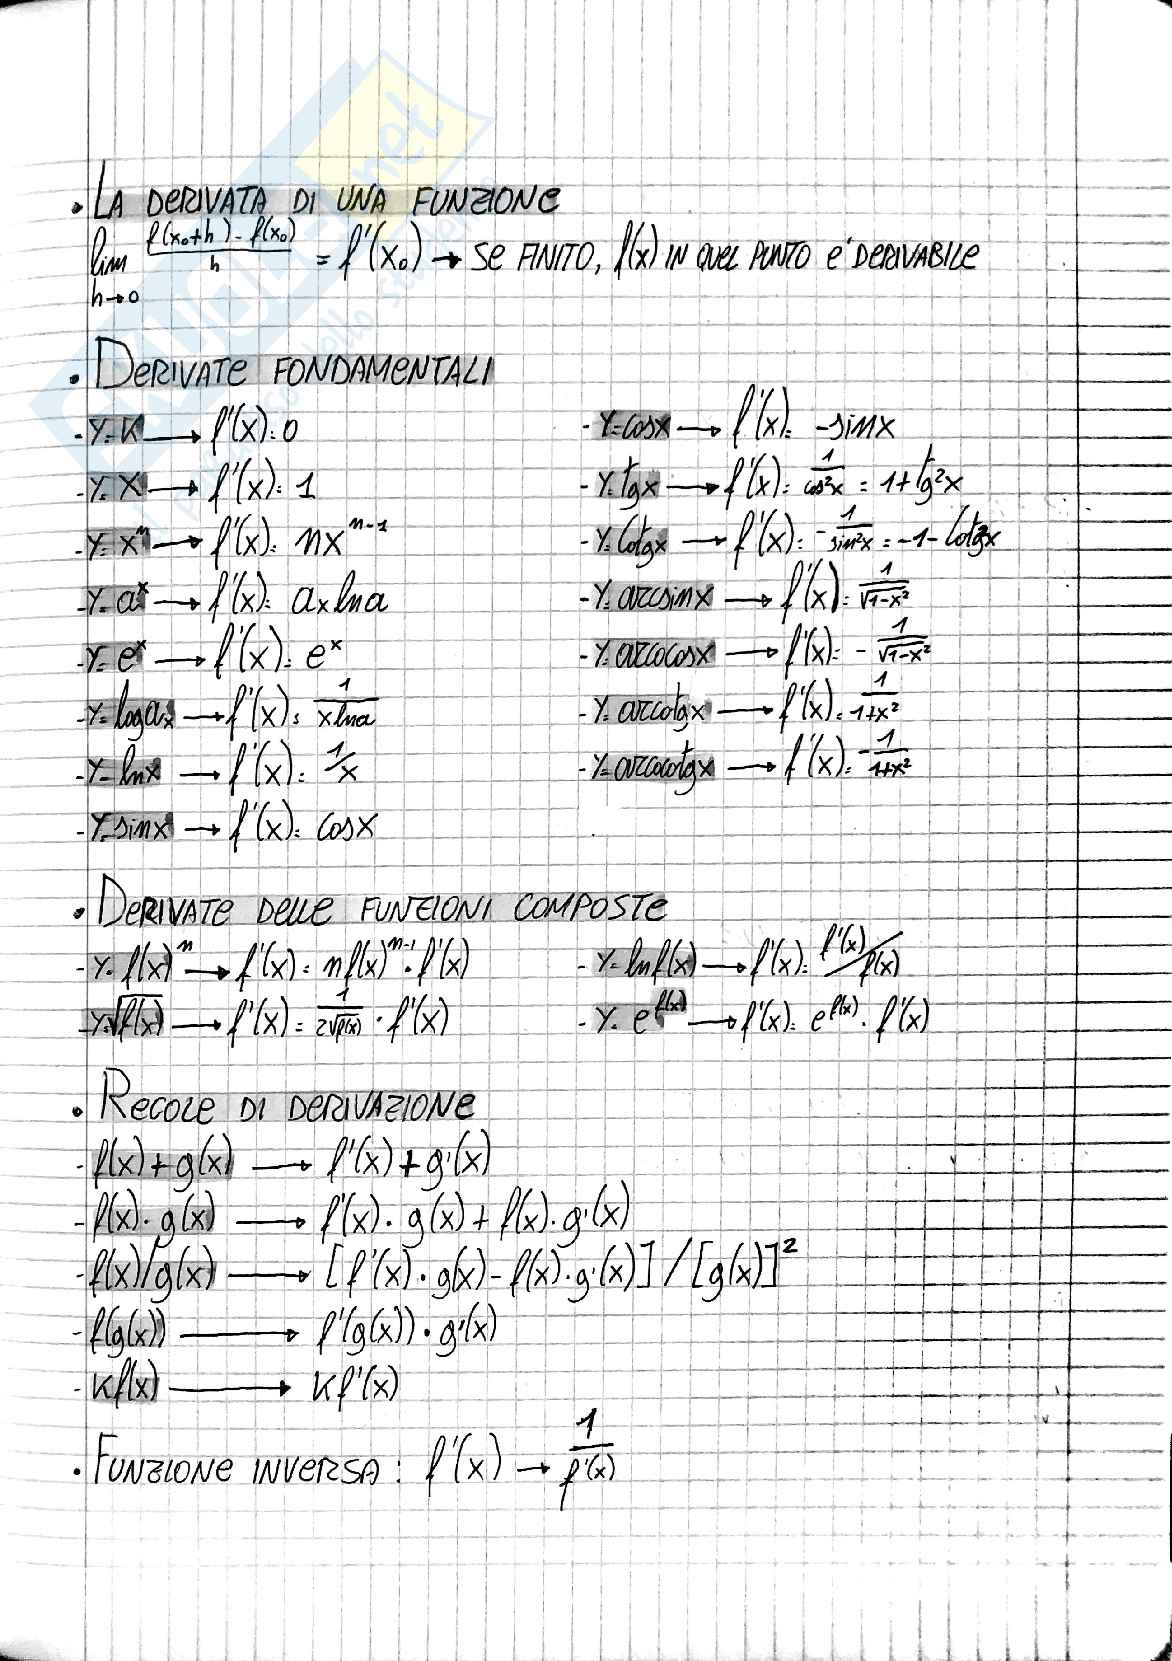 • LA DERIVATA DI UNA FUNZIONE
lim h→0 f(x₀+h) - f(x₀) / h = f'(x₀) → SE FINITO, f(x) IN QUEL PUNTO E' DERIVABILE
• DERIVATE FONDAMENTALI
- y=K → f'(x)= 0
- y= x → f'(x)= 1
- y= xⁿ → f'(x)= nxⁿ⁻¹
- y= aˣ → f'(x)= ax lna
- y= eˣ → f'(x)= eˣ
- y= logax → f'(x)= 1/xlna
- y= lnx → f'(x)= 1/x
- y= sinx → f'(x)= cosx
- y=cosx → f'(x)= -sinx
- y= tgx → f'(x)= 1/cos²x = 1+tg²x
- y= Cotgx → f'(x)= -1/sin²x = -1-Cotg²x
- y= arcsinx → f'(x)= 1/√1-x²
- y= arcocosx → f'(x)= - 1/√1-x²
- y= arcotgx → f'(x)= 1/1+x²
- y= arcocotgx → f'(x)= -1/1+x²
• DERIVATE DELLE FUNZIONI COMPOSTE
- y= f(x)ⁿ → f'(x)= nf(x)ⁿ⁻¹·f'(x)
- y=√f(x) → f'(x)= 1/2√f(x) · f'(x)
- y= lnf(x) → f'(x)= f'(x)/f(x)
- y= e^f(x) → f'(x)= e^f(x) · f'(x)
• REGOLE DI DERIVAZIONE
- f(x)+g(x) → f'(x)+g'(x)
- f(x)·g(x) → f'(x)·g(x)+f(x)·g'(x)
- f(x)/g(x) → [f'(x)·g(x)-f(x)·g'(x)]/[g(x)]²
- f(g(x)) → f'(g(x))·g'(x)
- Kf(x) → Kf'(x)
• FUNZIONE INVERSA: f'(x) → 1/f'(x)